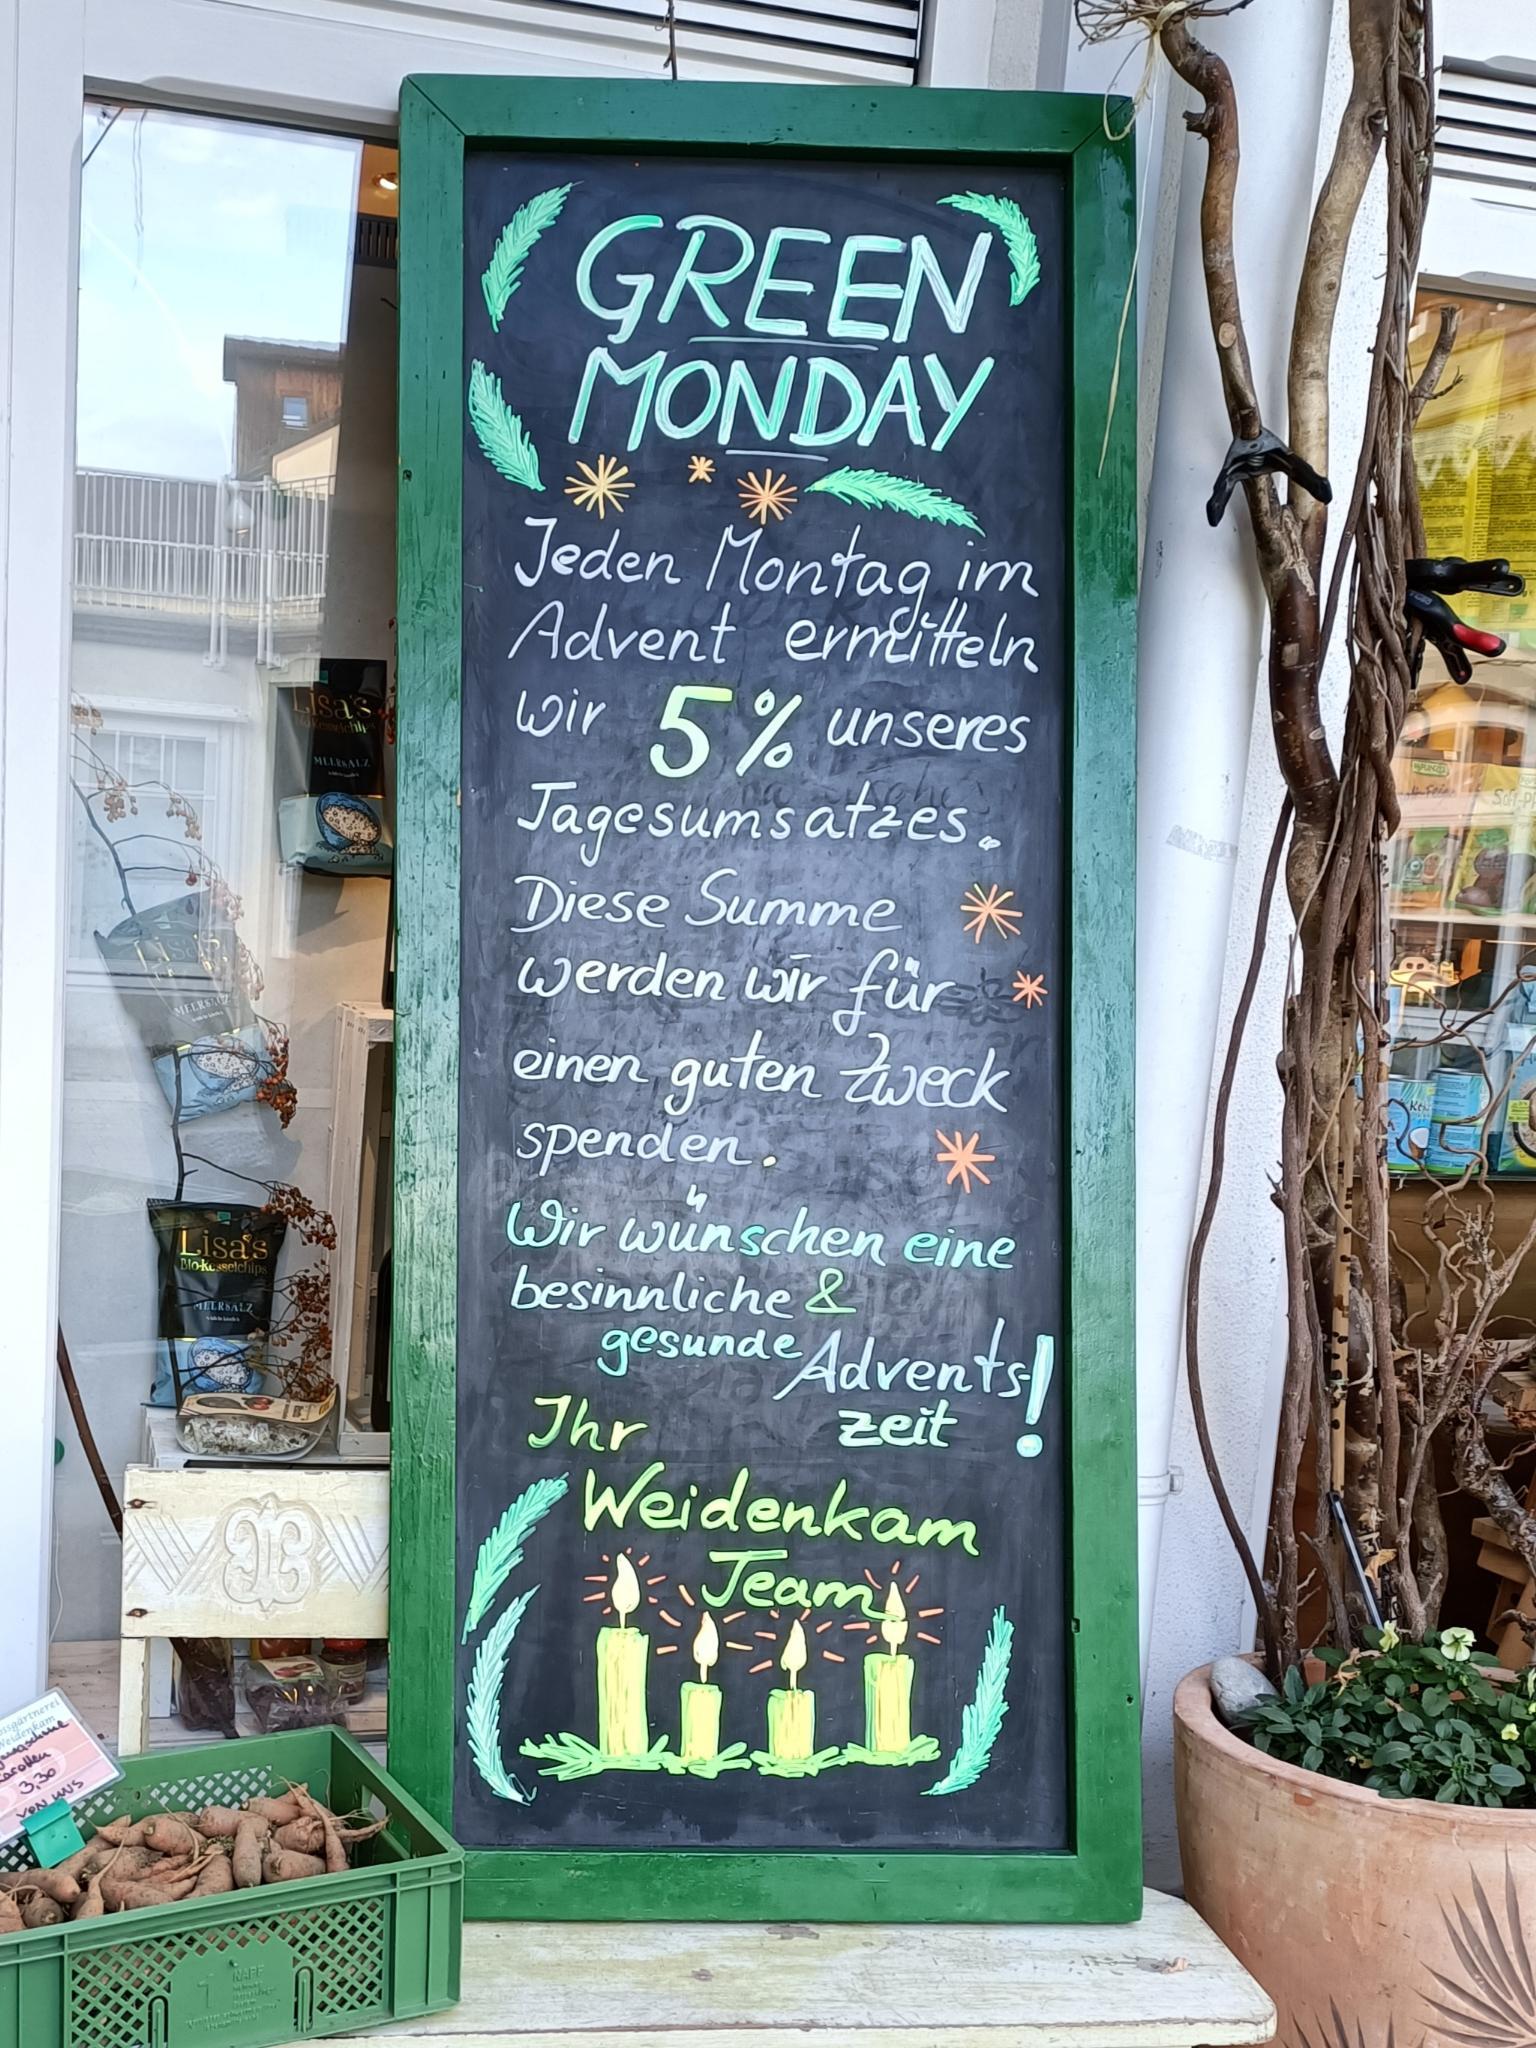 GREEN
MONDAY
Jeden Montag im
Advent ermitteln
wir 5% unseres
Tagesumsatzes.
Diese Summe
werden wir für
einen guten Zweck
spenden.
Wir wünschen eine
besinnliche &
gesunde Advents-
zeit!
Ihr
Weidenkam
Team
Lisa's
MEERSALZ
Lisa's
MEERSALZ
Lisa's
Bio-Kesselchips
MEERSALZ
Weidenkam
Karotten
3,30
von uns
NAPF